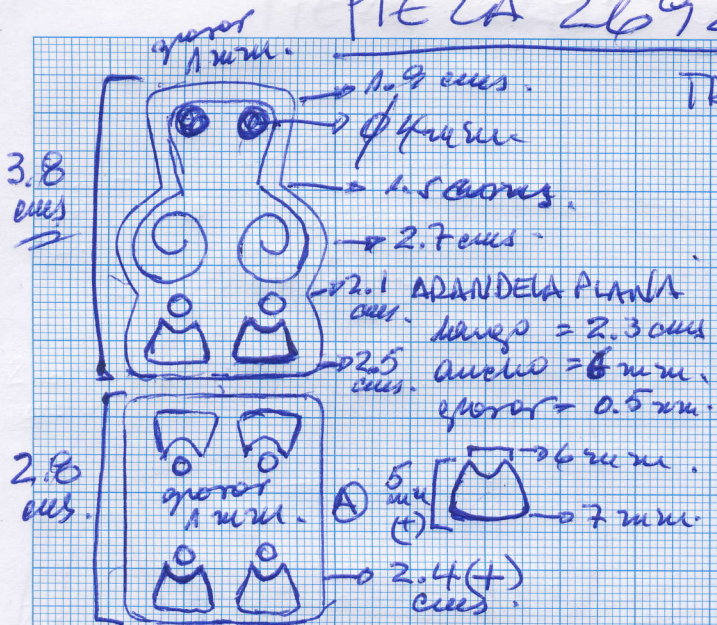 PIEZA 269
grosor
1 mm.
1.9 cms.
3.8
cms
ø 4 mm
1.5 cms.
2.7 cms.
2.1
cms.
ARANDELA PLANA
largo = 2.3 cms
2.5
cms.
ancho = 6 mm.
grosor = 0.5 mm.
2.8
cms.
grosor
1 mm.
A
5
mm
(+)
6 mm.
7 mm.
2.4 (+)
cms.